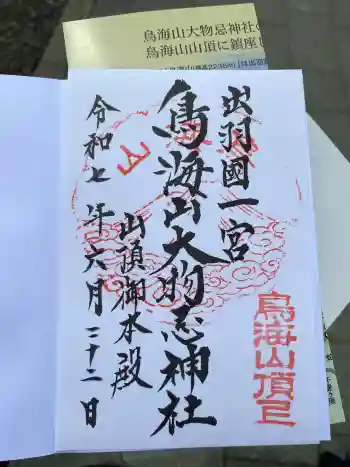 鳥海山大物忌神社の
鳥海山山頂に鎮座
出羽國一宮
鳥海山大物忌神社
山頂御本殿
令和七年六月二十二日
鳥海山頂